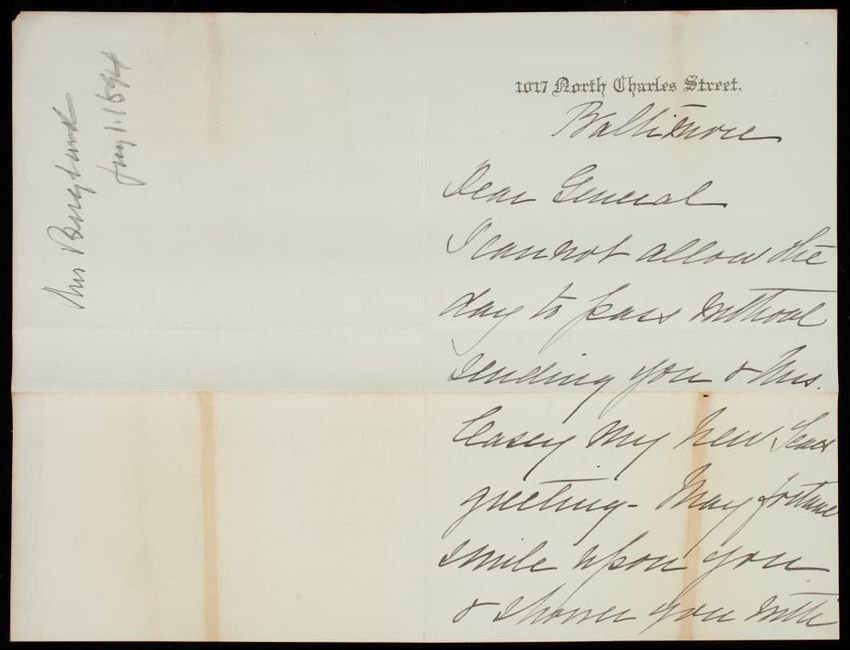 Mrs
Jany 1. 1894
1017 North Charles Street.
Baltimore
Dear General
I cannot allow the
day to pass without
sending you & Mrs.
Casey my New Years
greeting - May fortune
smile upon you
& shower you with